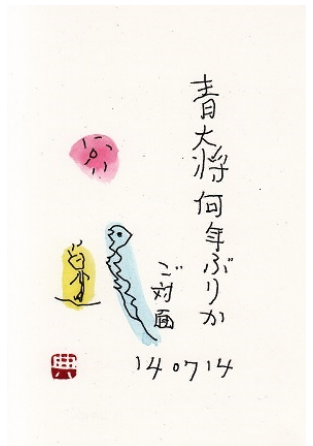 青大将何年ぶりか
ご対面
140714
典